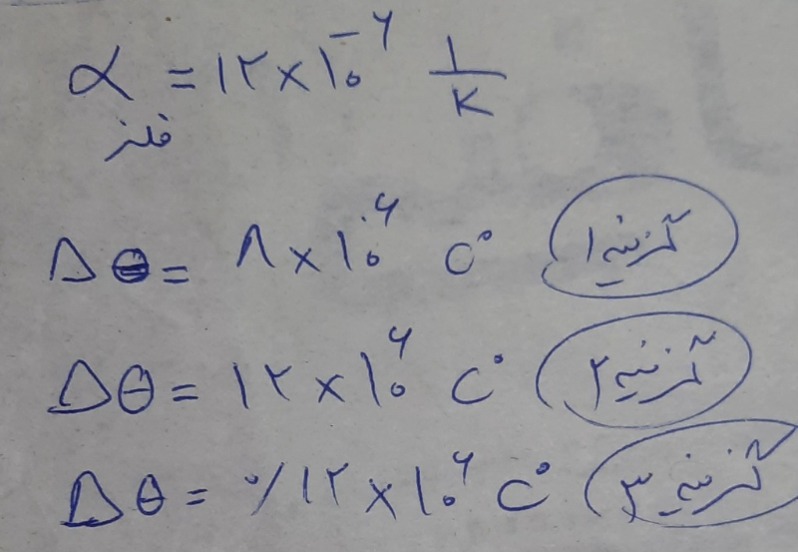 α = ۱۲×۱۰^-۶ ۱/K
فلز
Δθ = ۸×۱۰^۶ C° گزینه ۱
Δθ = ۱۲×۱۰^۶ C° گزینه ۲
Δθ = ۰/۱۲×۱۰^۶ C° گزینه ۳